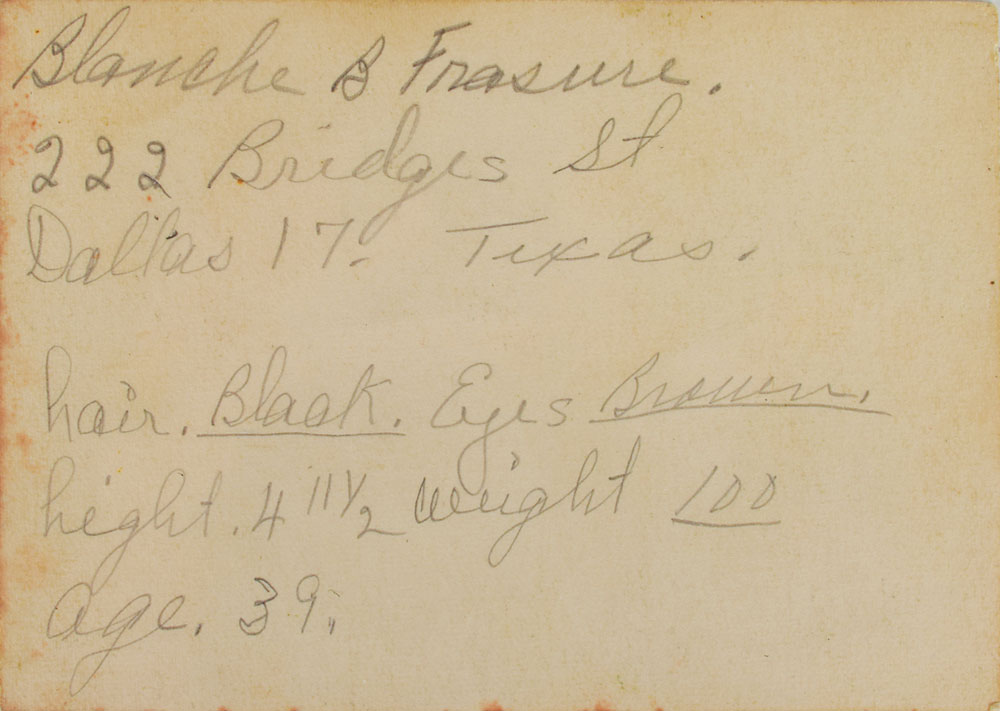 Blanche B Frasure.
222 Bridges St
Dallas 17. Texas.
hair. Black. Eyes Brown.
hight. 4 11 1/2 weight 100
age. 39.